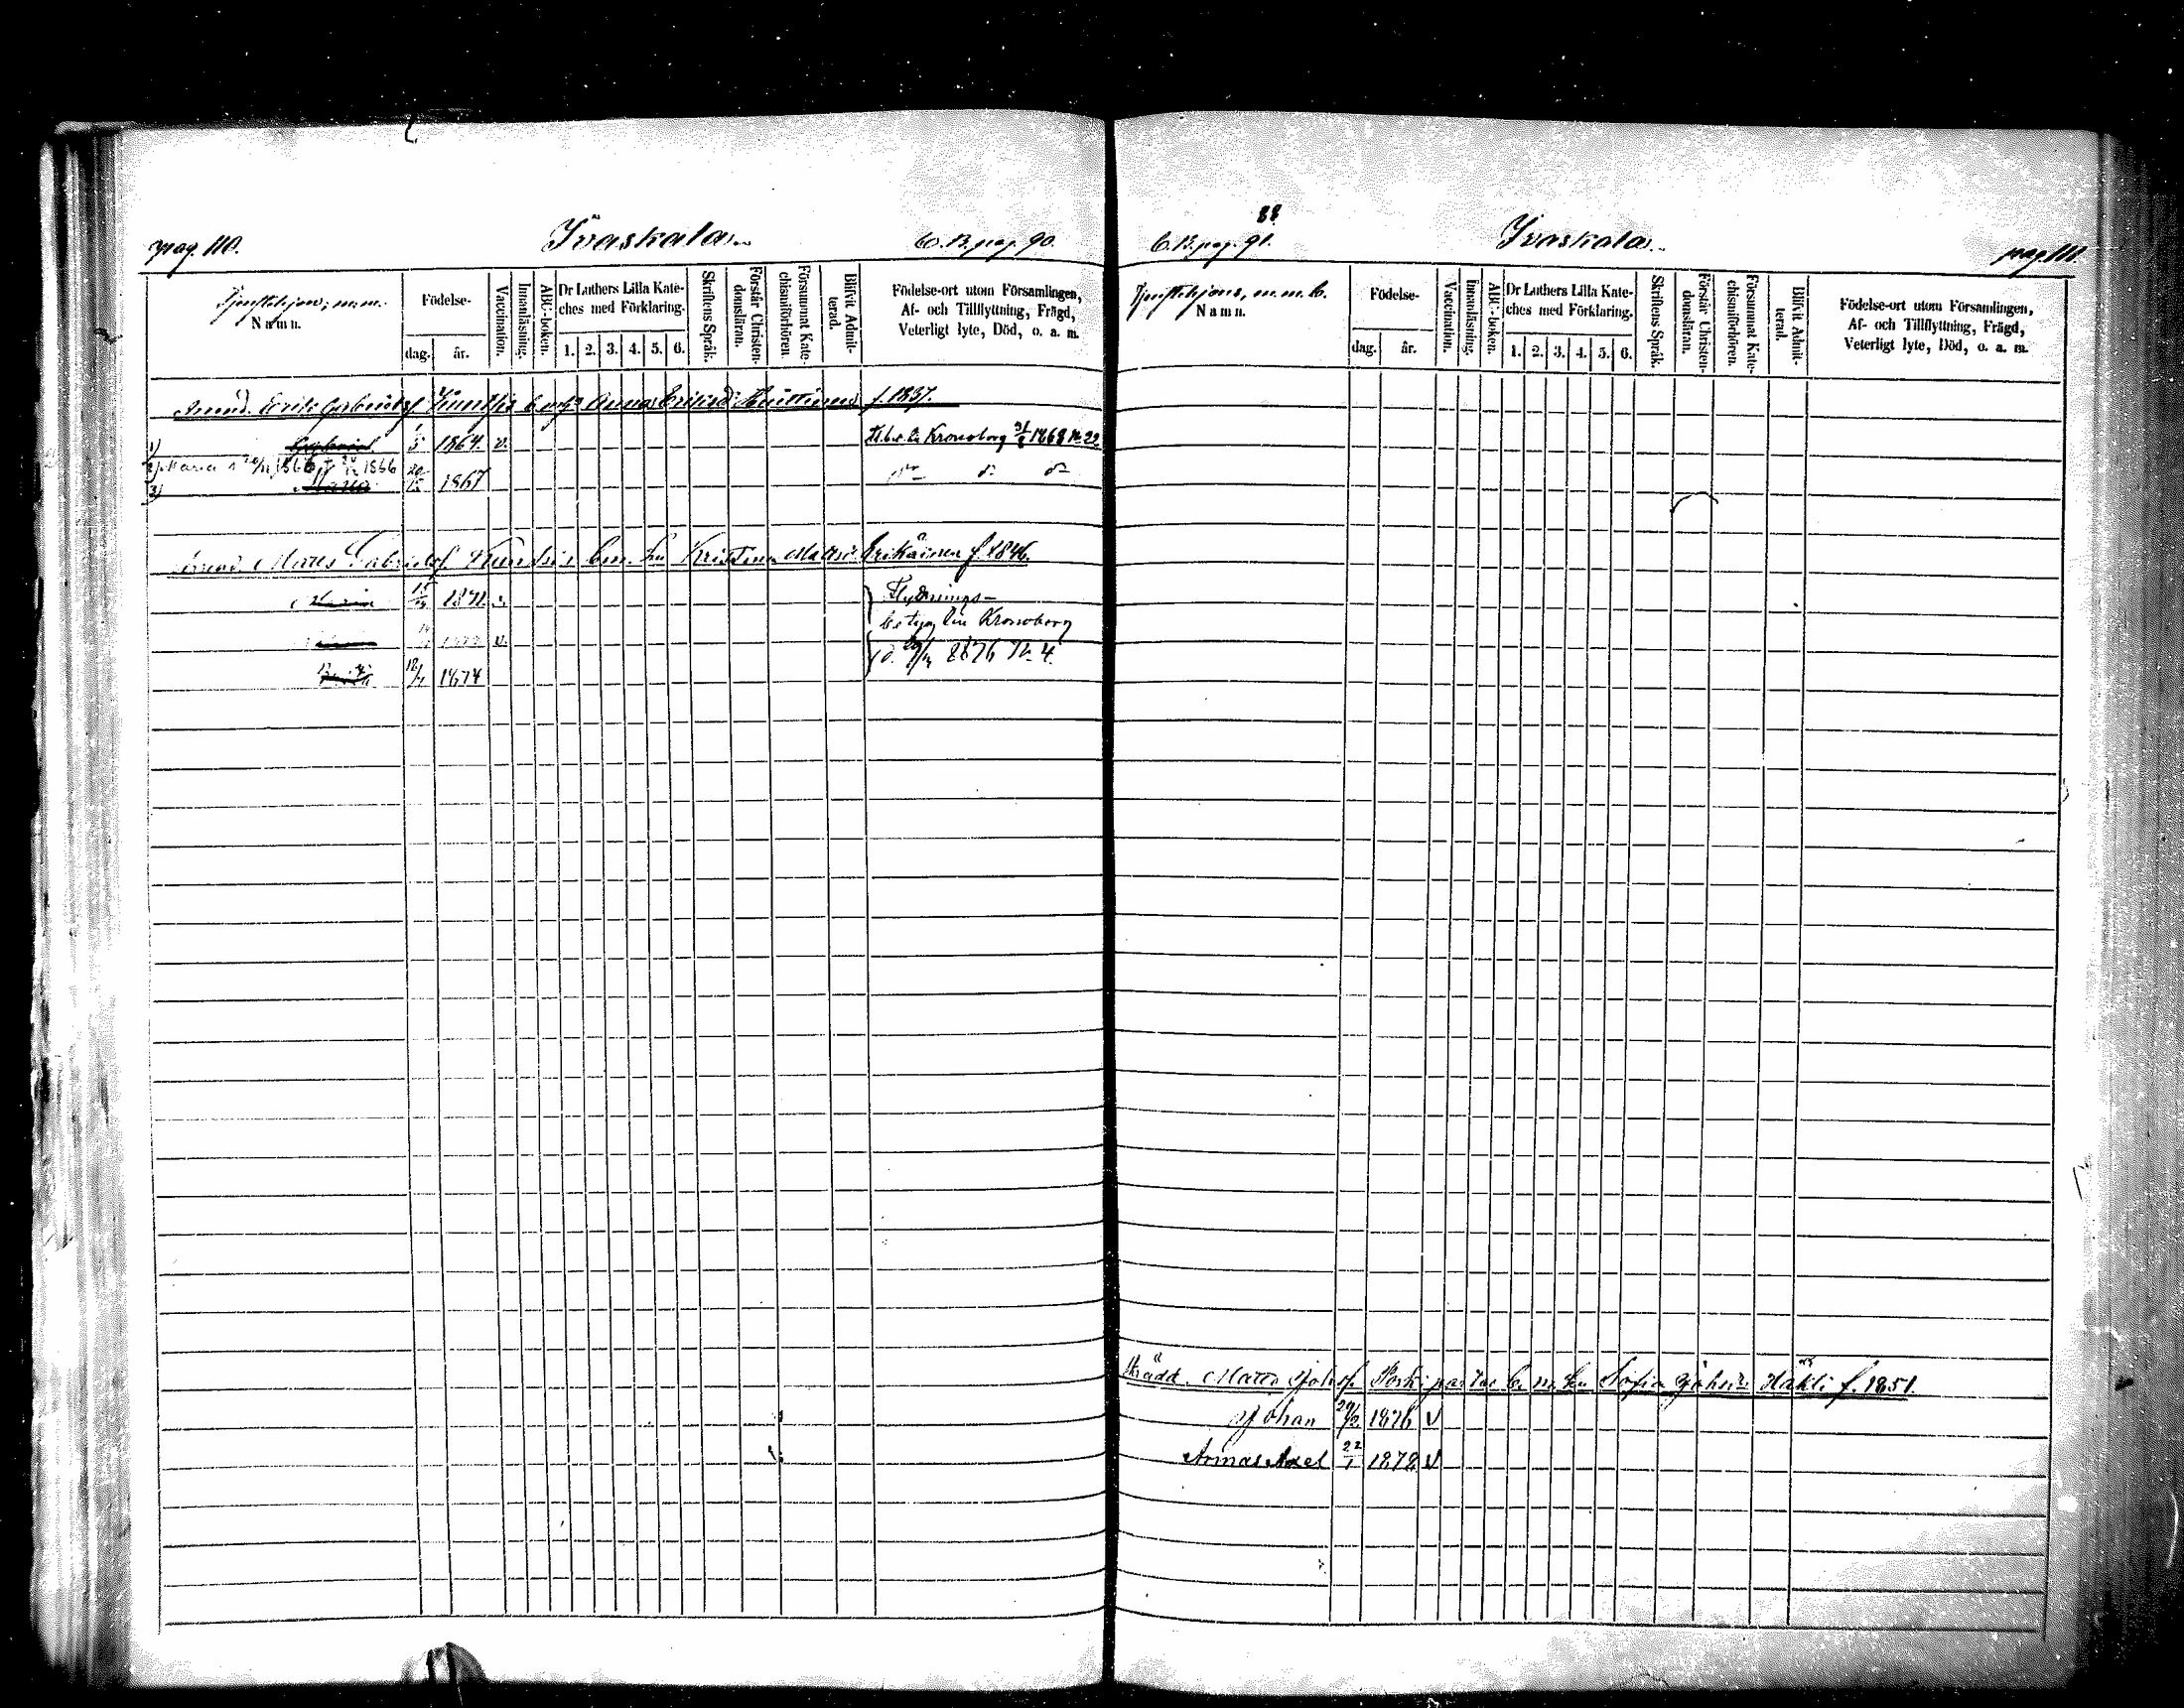 pag. 110.
Ivaskala
C. B. pag. 90.
Tjenstehjon, m.m.
Namn.
Födelse-
dag.
år.
Vaccination.
Innanläsning.
ABC-boken.
Dr Luthers Lilla Kate-
ches med Förklaring.
1. 2. 3. 4. 5. 6.
Skriftens Språk.
Förstår Christen-
domsläran.
Försummat Kate-
chismiförhören.
Blifvit Admit-
terad.
Födelse-ort utom Församlingen,
Af- och Tillflyttning, Frägd,
Veterligt lyte, Död, o. a. m.
Erik Gabrielsf Anna f. 1837.
1) Gabriel 1/5 1864. v. Kronoborg 31/8 1868 No 22
2) Maria 1866 1866
3) Maria 1867
Mats Gabrielsf. Kristina Matts: Erikäinen f. 1846.
Maria 1871. v.
Flyttnings-
betyg Kronoborg
v.
1876 No. 4.
12/7 1874
88
C. B. pag. 91.
Ivaskala
pag. 111.
Tjenstehjons, m.m. b.
Namn.
Födelse-
dag.
år.
Vaccination.
Innanläsning.
ABC-boken.
Dr Luthers Lilla Kate-
ches med Förklaring.
1. 2. 3. 4. 5. 6.
Skriftens Språk.
Förstår Christen-
domsläran.
Försummat Kate-
chismiförhören.
Blifvit Admit-
terad.
Födelse-ort utom Församlingen,
Af- och Tillflyttning, Frägd,
Veterligt lyte, Död, o. a. m.
Skrädd. Matts Johsf. Sofia Johsd: Häkli f. 1851.
Johan 1876 v
Armas Axel 22/1 1878 v